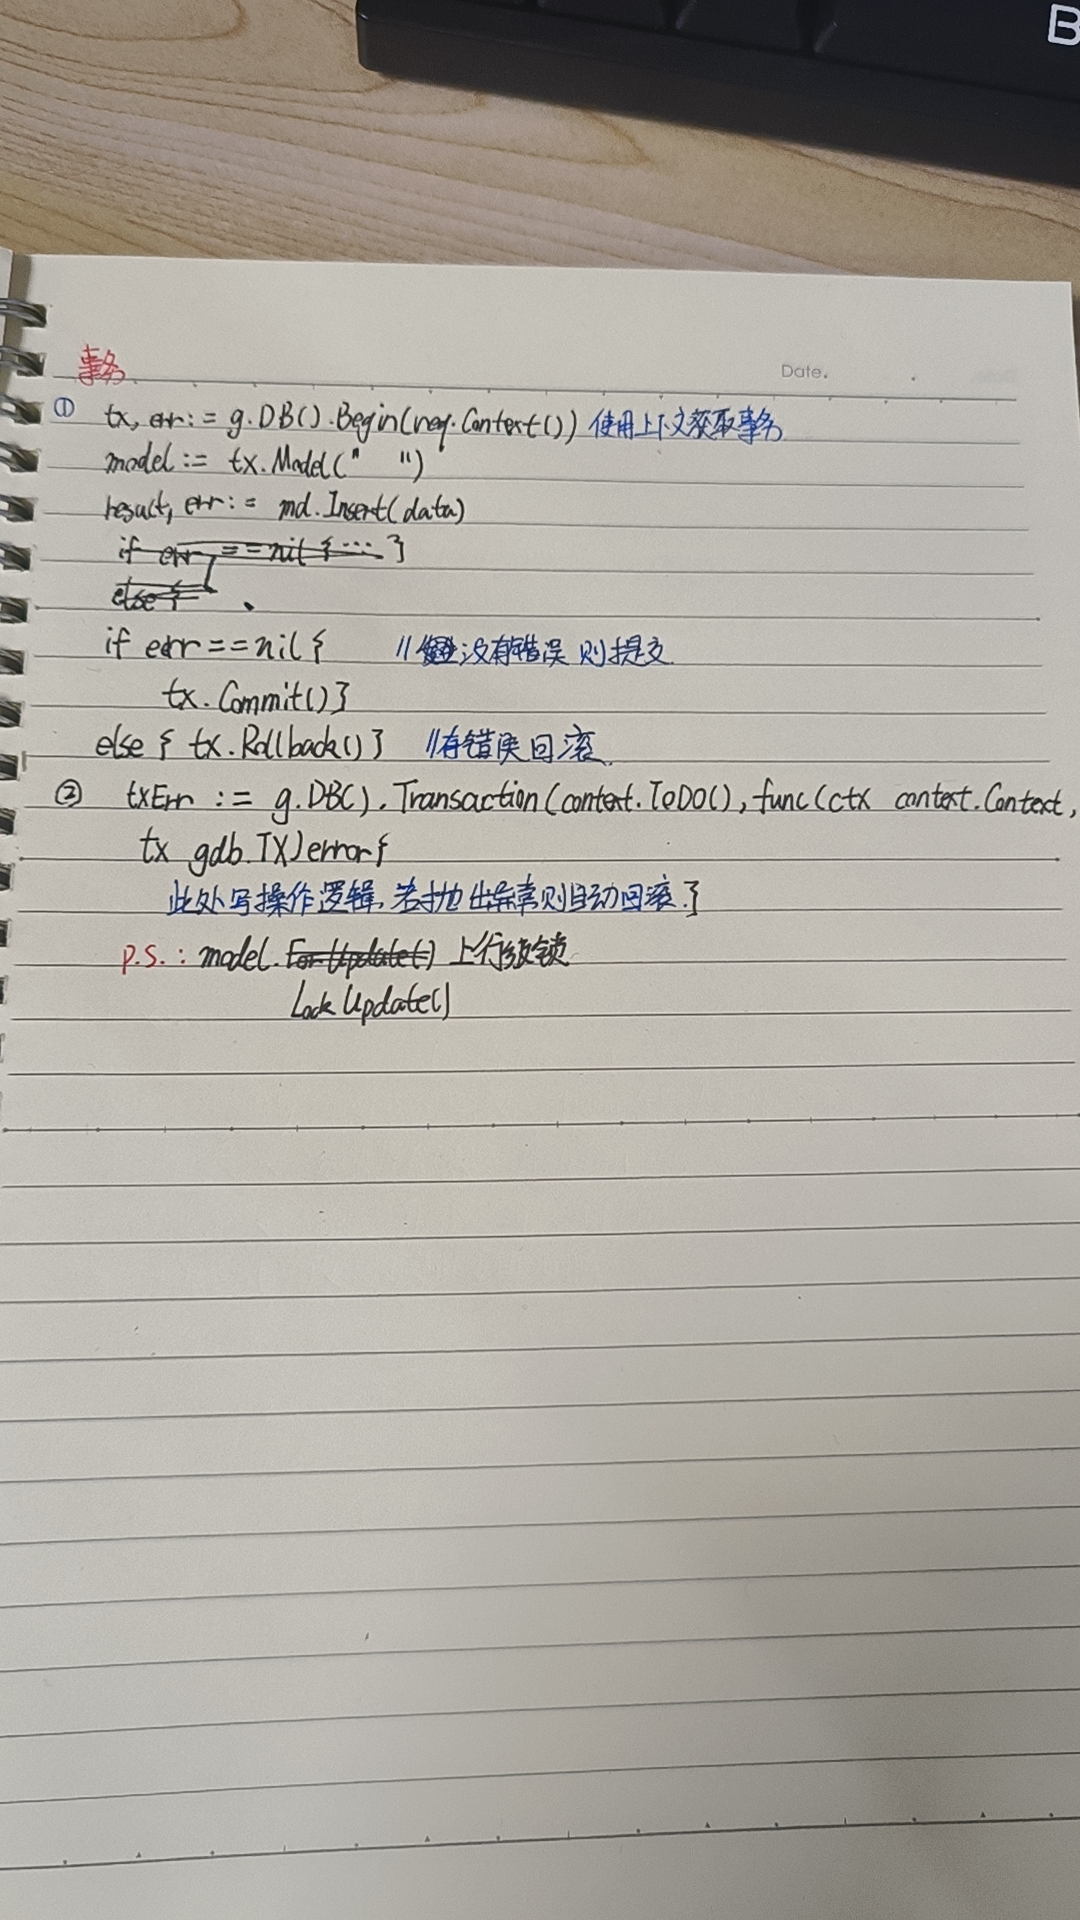 B
Date.
事务
① tx, err := g.DB().Begin(req.Context()) 使用上下文获取事务
model := tx.Model(" ")
result, err := md.Insert(data)
if err == nil { ... }
else {
if err == nil { // 没有错误则提交
tx.Commit() }
else { tx.Rollback() } // 有错误回滚
② txErr := g.DB().Transaction(context.TODO(), func(ctx context.Context,
tx gdb.TX) error {
此处写操作逻辑, 若抛出异常则自动回滚. }
P.S.: model.ForUpdate() 上行级锁
LockUpdate()